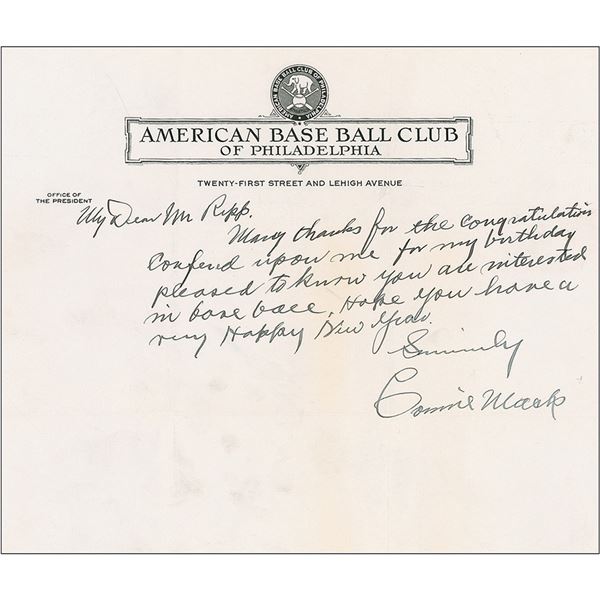 AMERICAN BASE BALL CLUB OF PHILADELPHIA
AMERICAN BASE BALL CLUB
OF PHILADELPHIA
TWENTY-FIRST STREET AND LEHIGH AVENUE
OFFICE OF
THE PRESIDENT
My Dear Mr Ripp.
Many thanks for the congratulations
Conferd upon me for my birthday
pleased to know you are interested
in base ball. Hope you have a
very Happy New Year.
Sincerely
Connie Mack